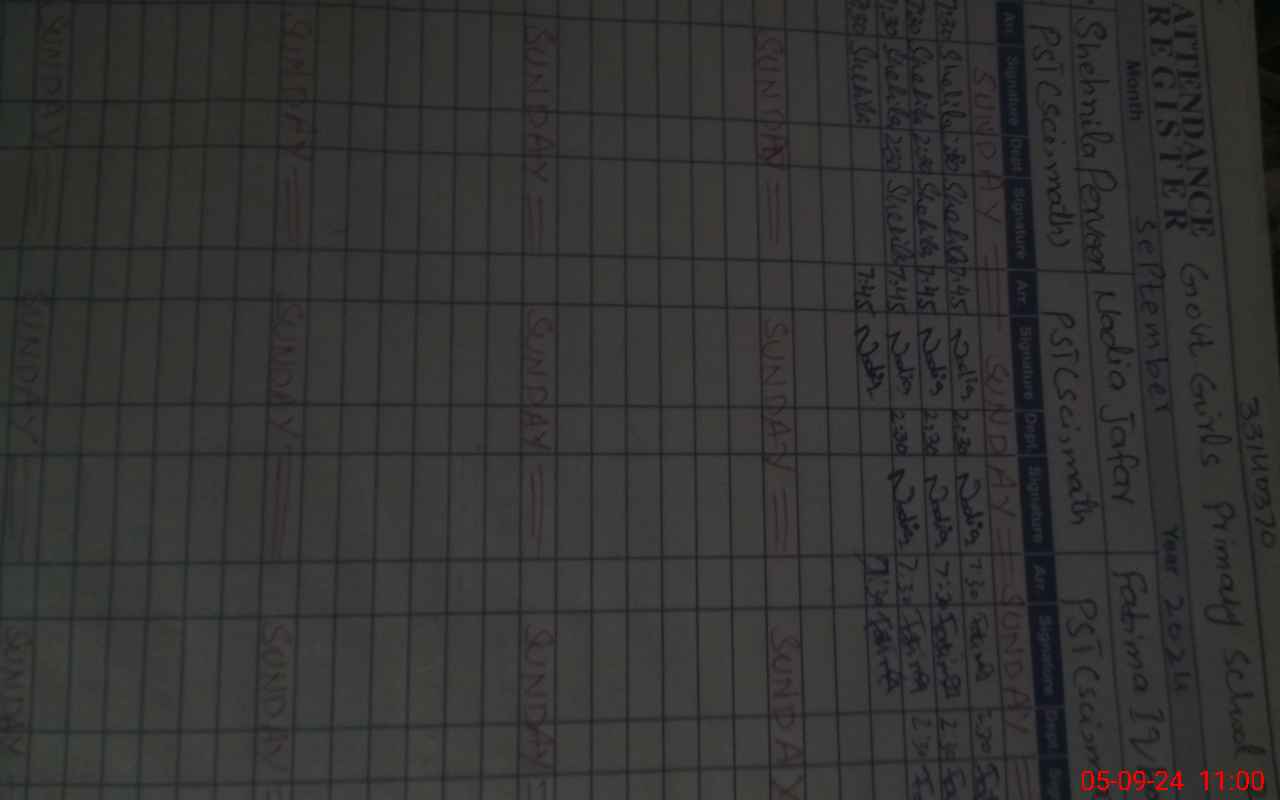 33140370
ATTENDANCE REGISTER Govt Girls Primary School
Month September Year 2024
Shehnila Perveen Nadia Jafar Fatima
PST(sci,math) PST(sci,math PST(sci,m
Arr. Signature Dept Signature Arr. Signature Dept Signature Arr. Signature Dept
SUNDAY SUNDAY SUNDAY
7:30 7:45 Nadia 2:30 Nadia 7:30 2:30
7:30 7:45 Nadia 2:30 Nadia 7:30 Fatima 2:30
7:30 7:45 Nadia 2:30 Nadia 7:30 Fatima 2:30
7:30 7:45 Nadia 7:30 Fatima
SUNDAY SUNDAY SUNDAY
SUNDAY SUNDAY SUNDAY
SUNDAY SUNDAY SUNDAY
SUNDAY SUNDAY SUNDAY
05-09-24 11:00